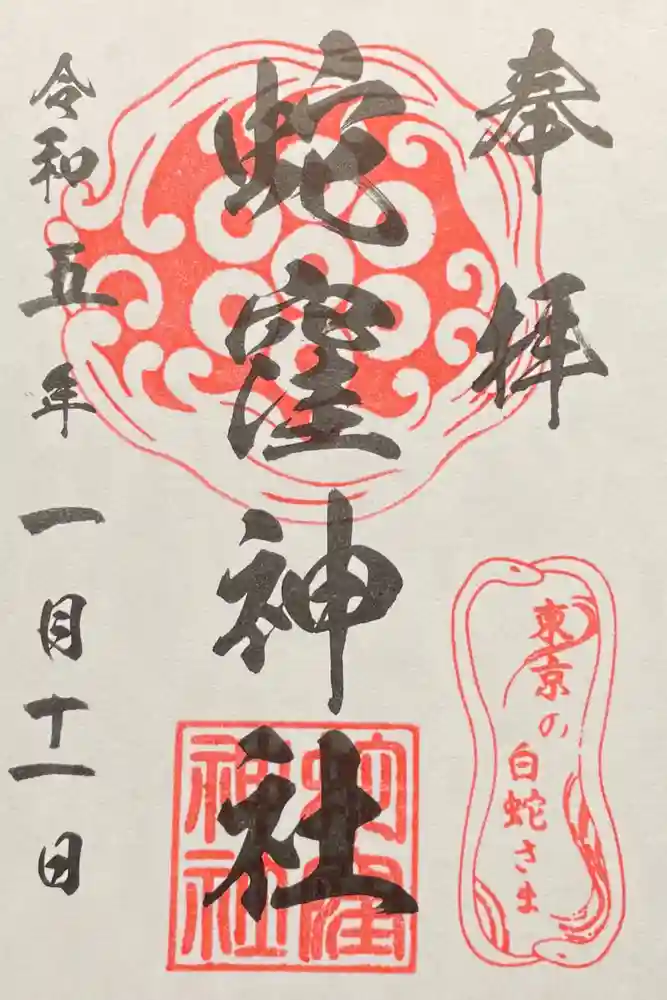 奉拝
蛇窪神社
令和五年一月十一日
東京の
白蛇さま
蛇窪
神社